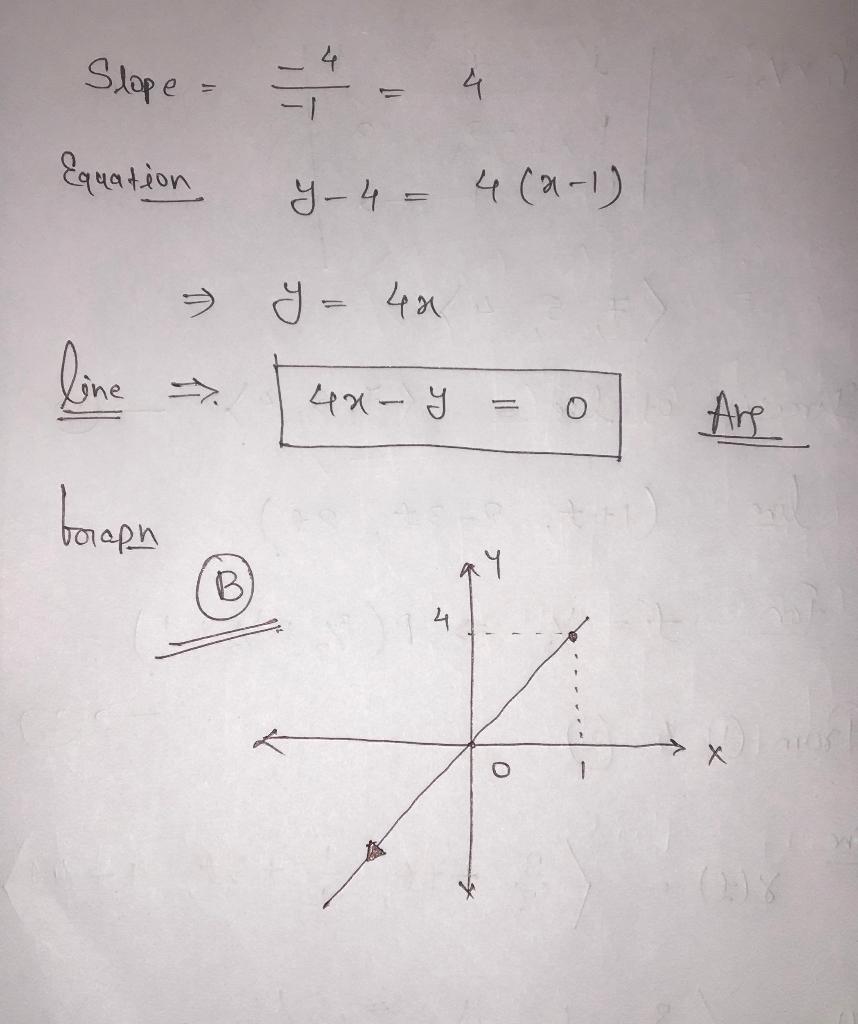 Slope = -4/-1 = 4
Equation y-4 = 4(x-1)
⇒ y = 4x
line ⇒ 4x - y = 0 Ans
Graph
B
Y
4
0 1 X